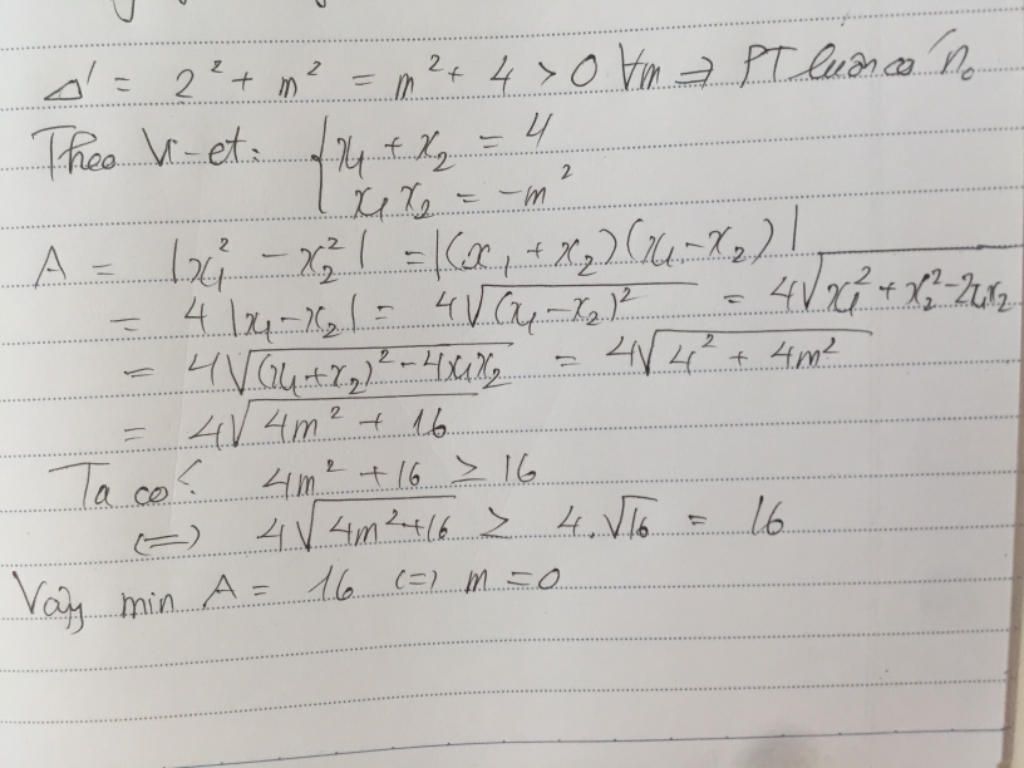 Δ' = 2² + m² = m² + 4 > 0 ∀m ⇒ PT luôn có n₀
Theo Vi-et: { x₁ + x₂ = 4
x₁x₂ = -m²
A = |x₁² - x₂²| = |(x₁ + x₂)(x₁ - x₂)|
= 4|x₁ - x₂| = 4√((x₁ - x₂)²) = 4√(x₁² + x₂² - 2x₁x₂)
= 4√((x₁ + x₂)² - 4x₁x₂) = 4√(4² + 4m²)
= 4√(4m² + 16)
Ta có: 4m² + 16 ≥ 16
(=) 4√(4m² + 16) ≥ 4.√16 = 16
Vậy min A = 16 (=) m = 0